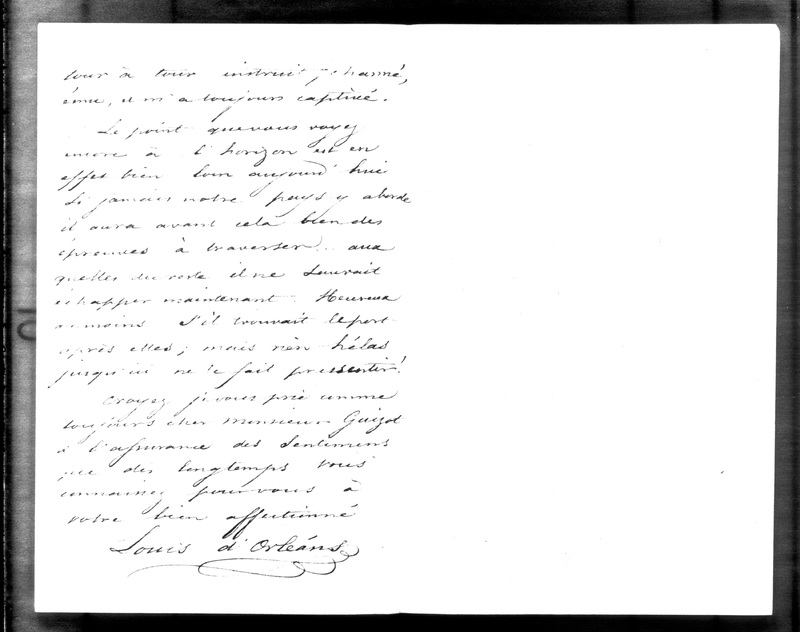 tour à tour instruit, charmé,
ému, il m'a toujours captivé.
Le point que vous voyez
encore à l'horizon est en
effet bien loin aujourd'hui
Si jamais notre pays y aborde
il aura avant cela bien des
épreuves à traverser. aux
quelles du reste il ne saurait
échapper maintenant. Heureux
au moins s'il trouvait le port
après elles; mais rien hélas
jusqu'ici ne le fait pressentir!
Croyez je vous prie comme
toujours cher Monsieur Guizot
à l'assurance des sentimens
que dès longtemps vous
connaissez pour vous à
votre bien affectionné
Louis d'Orléans